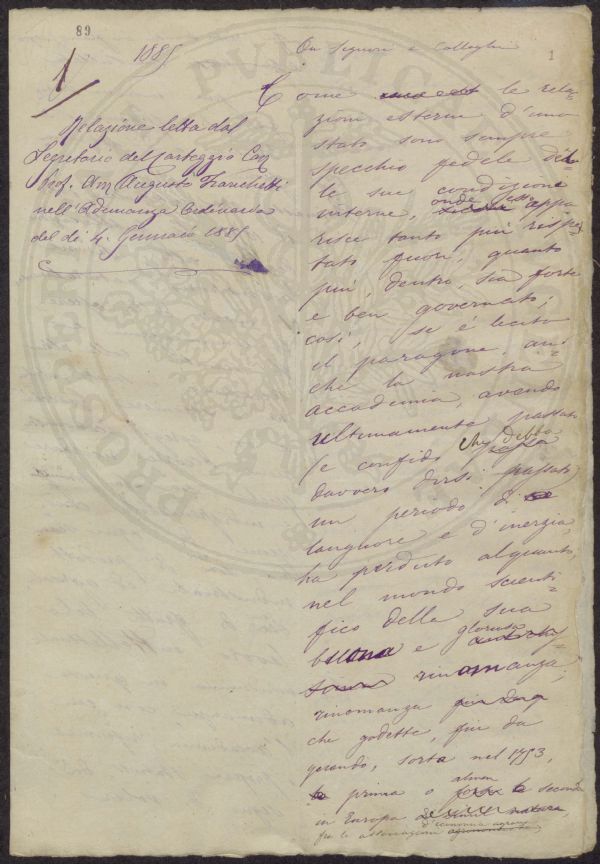 89
1
1885
1
On. Signori e Colleghi
Relazione letta dal
Segretario del Carteggio Con
Prof. Avv. Augusto Franchetti
nell'Adunanza Ordinaria
del dì 4. Gennaio 1885
Come le rela-
zioni esterne d'uno
stato sono sempre
specchio fedele del-
le sue condizioni
interne, onde esso appa-
risce tanto più rispet-
tato fuori, quanto
più, dentro, sia forte
e ben governato;
così, se è lecito
il paragone, an-
che la nostra
accademia, avendo
ultimamente passato
(e confido che debba
davvero dirsi passato)
un periodo di
languore e d'inerzia,
ha perduto alquanto,
nel mondo scienti-
fico della sua
buona e gloriosa
rinomanza;
rinomanza
che godette, fin da
quando, sorta nel 1753,
prima o almen seconda
in Europa
fra le associazioni d'economia agraria
PROSPERITATI PVBLICAE